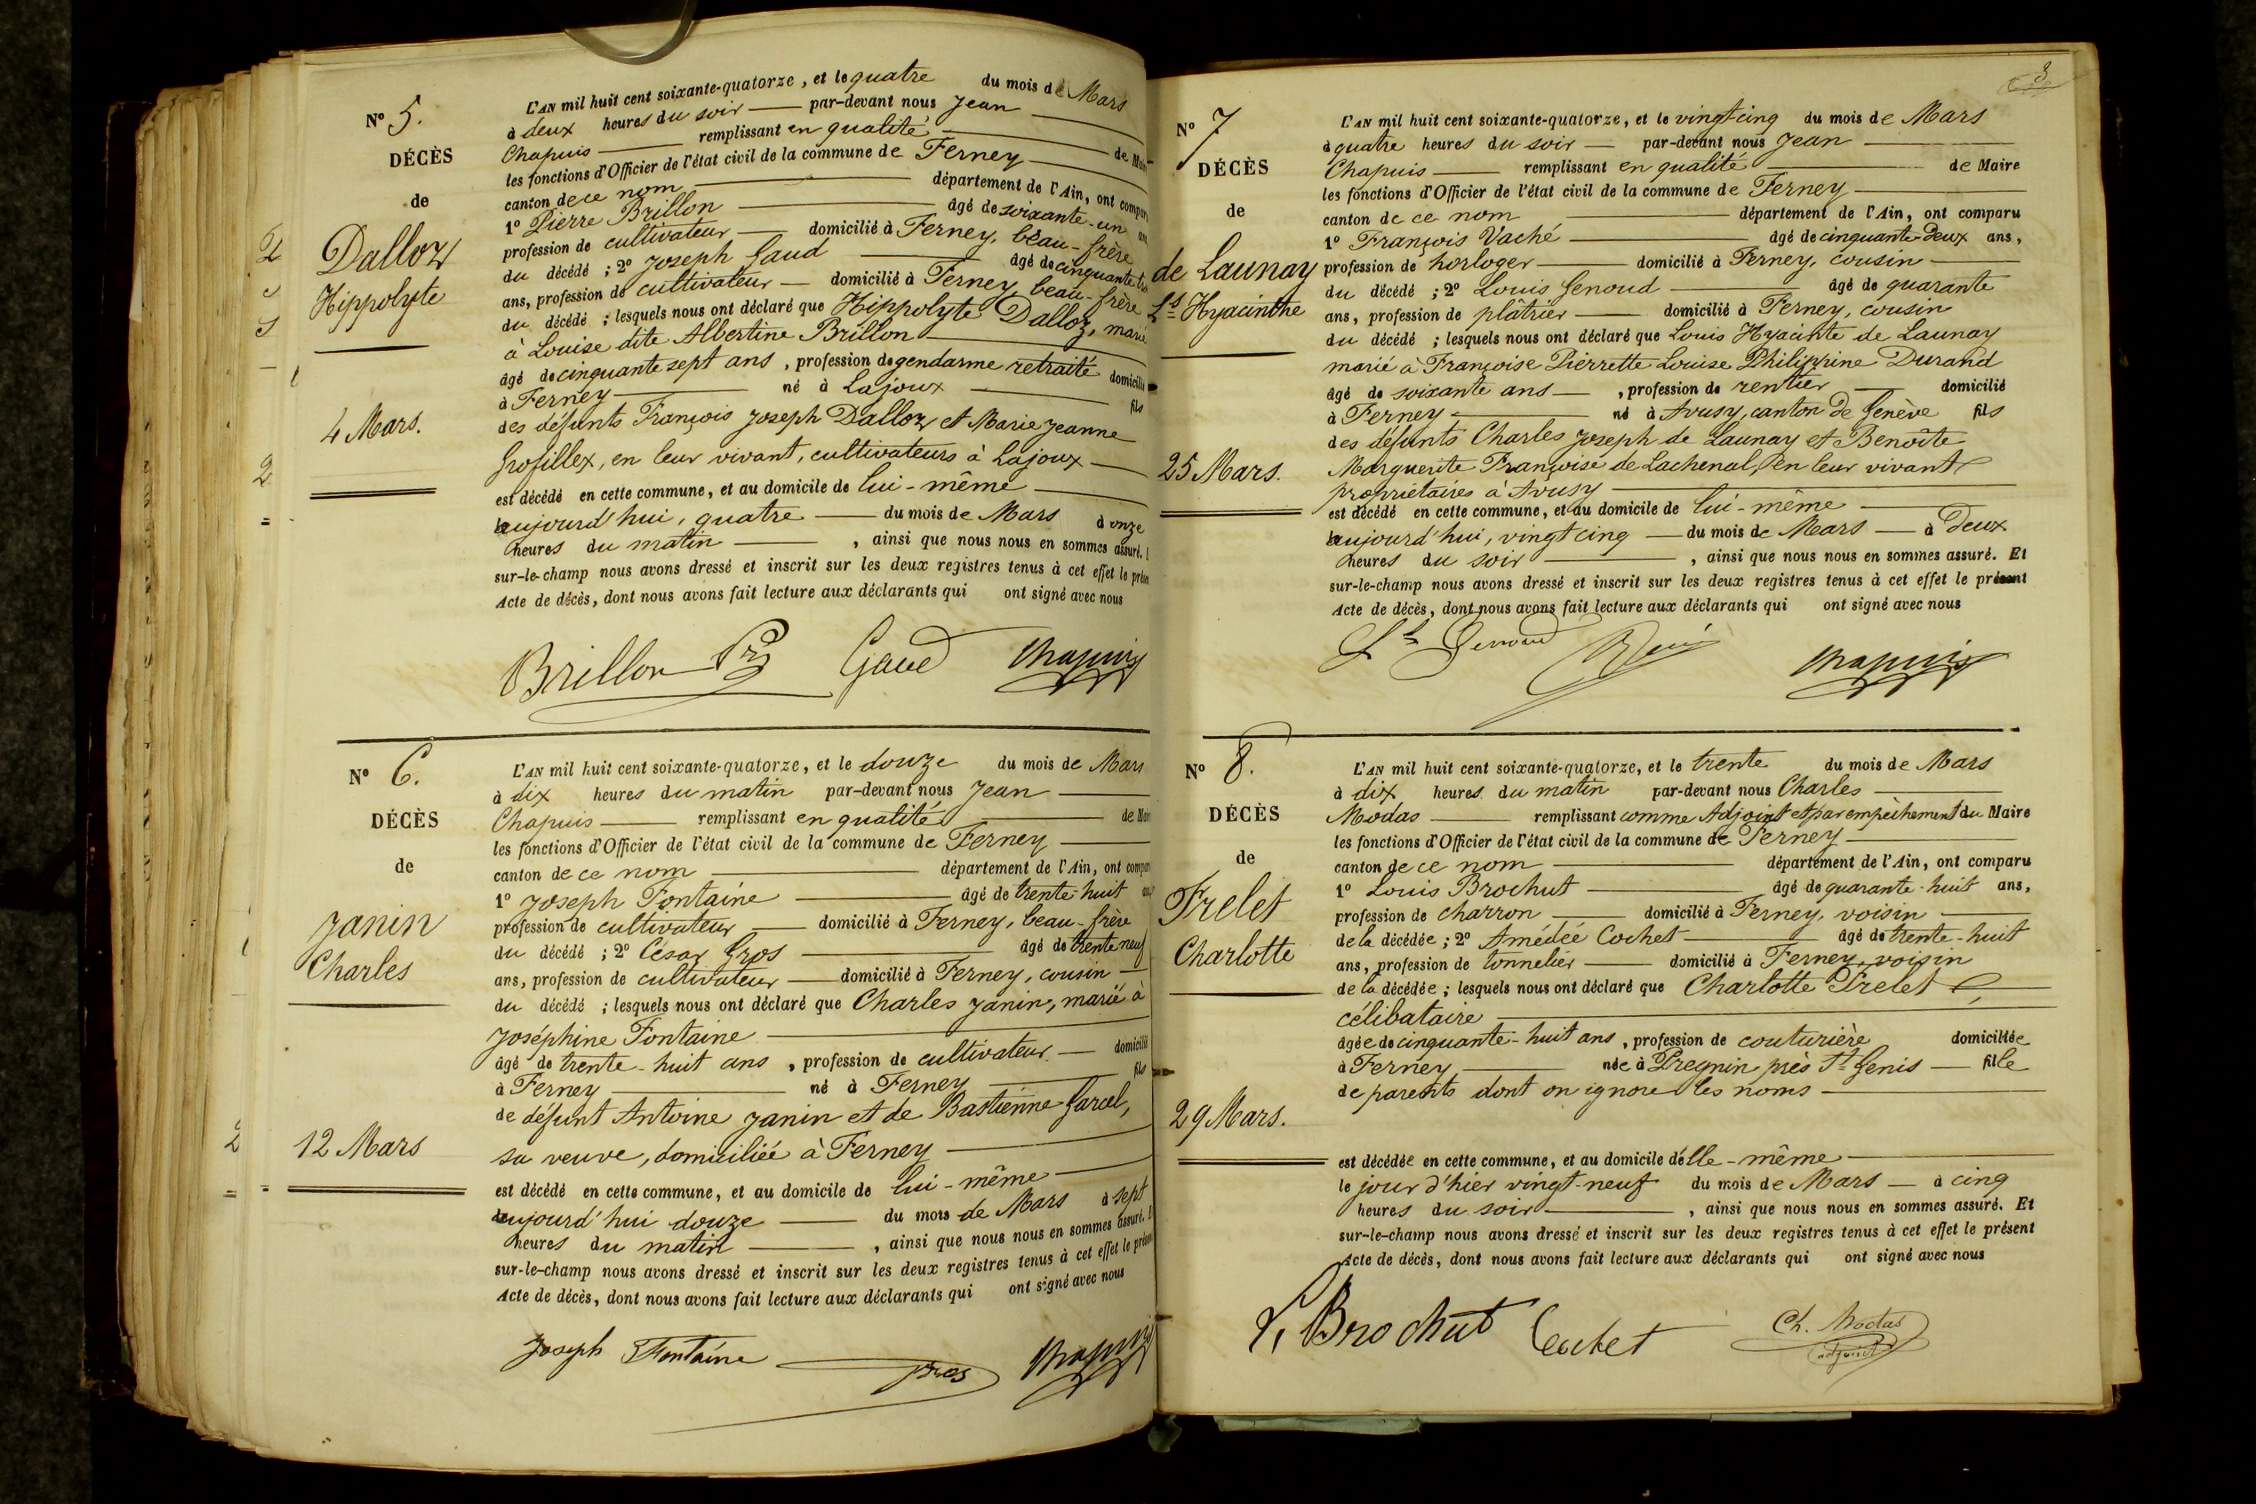 N° 5.
DÉCÈS
de
Dalloz
Hippolyte
4 Mars.
L'AN mil huit cent soixante-quatorze, et le quatre du mois de Mars
à deux heures du soir — par-devant nous Jean
Chapuis — remplissant en qualité — de Maire
les fonctions d'Officier de l'état civil de la commune de Ferney
canton de ce nom — département de l'Ain, ont comparu
1° Pierre Brillon — âgé de soixante-un ans,
profession de cultivateur — domicilié à Ferney, beau-frère
du décédé ; 2° Joseph Gaud — âgé de cinquante
ans, profession de cultivateur — domicilié à Ferney, beau-frère
du décédé ; lesquels nous ont déclaré que Hippolyte Dalloz, marié
à Louise dite Albertine Brillon
âgé de cinquante sept ans, profession de gendarme retraité domicilié
à Ferney — né à Lajoux — fils
des défunts François Joseph Dalloz et Marie Jeanne
Grosfillex, en leur vivant, cultivateurs à Lajoux
est décédé en cette commune, et au domicile de lui-même
aujourd'hui, quatre — du mois de Mars à onze
heures du matin —, ainsi que nous nous en sommes assuré.
sur-le-champ nous avons dressé et inscrit sur les deux registres tenus à cet effet le présent
Acte de décès, dont nous avons fait lecture aux déclarants qui ont signé avec nous
Brillon Gaud Chapuis
N° 6.
DÉCÈS
de
Janin
Charles
12 Mars
L'AN mil huit cent soixante-quatorze, et le douze du mois de Mars
à dix heures du matin par-devant nous Jean
Chapuis — remplissant en qualité — de Maire
les fonctions d'Officier de l'état civil de la commune de Ferney
canton de ce nom — département de l'Ain, ont comparu
1° Joseph Fontaine — âgé de trente-huit ans
profession de cultivateur — domicilié à Ferney, beau-frère
du décédé ; 2° César Gros — âgé de trente neuf
ans, profession de cultivateur — domicilié à Ferney, cousin
du décédé ; lesquels nous ont déclaré que Charles Janin, marié à
Joséphine Fontaine
âgé de trente-huit ans, profession de cultivateur — domicilié
à Ferney — né à Ferney — fils
de défunt Antoine Janin et de Bastienne Garcel,
sa veuve, domiciliée à Ferney
est décédé en cette commune, et au domicile de lui-même
aujourd'hui douze — du mois de Mars à sept
heures du matin —, ainsi que nous nous en sommes assuré.
sur-le-champ nous avons dressé et inscrit sur les deux registres tenus à cet effet le présent
Acte de décès, dont nous avons fait lecture aux déclarants qui ont signé avec nous
Joseph Fontaine Gros Chapuis
3
N° 7
DÉCÈS
de
de Launay
Ls Hyacinthe
25 Mars.
L'AN mil huit cent soixante-quatorze, et le vingt cinq du mois de Mars
à quatre heures du soir — par-devant nous Jean
Chapuis — remplissant en qualité — de Maire
les fonctions d'Officier de l'état civil de la commune de Ferney
canton de ce nom — département de l'Ain, ont comparu
1° François Vaché — âgé de cinquante-deux ans,
profession de horloger — domicilié à Ferney, cousin
du décédé ; 2° Louis Genoud — âgé de quarante
ans, profession de plâtrier — domicilié à Ferney, cousin
du décédé ; lesquels nous ont déclaré que Louis Hyacinte de Launay
marié à Françoise Pierrette Louise Philippine Durand
âgé de soixante ans —, profession de rentier — domicilié
à Ferney — né à Avusy, canton de Genève fils
des défunts Charles Joseph de Launay et Benoîte
Marguerite Françoise de Lachenal, en leur vivant
propriétaires à Avusy
est décédé en cette commune, et au domicile de lui-même
aujourd'hui, vingt cinq — du mois de Mars — à deux
heures du soir —, ainsi que nous nous en sommes assuré. Et
sur-le-champ nous avons dressé et inscrit sur les deux registres tenus à cet effet le présent
Acte de décès, dont nous avons fait lecture aux déclarants qui ont signé avec nous
Ls Genoud Chapuis
N° 8.
DÉCÈS
de
Frelet
Charlotte
29 Mars.
L'AN mil huit cent soixante-quatorze, et le trente du mois de Mars
à dix heures du matin par-devant nous Charles
Modas — remplissant comme Adjoint et par empêchement du Maire
les fonctions d'Officier de l'état civil de la commune de Ferney
canton de ce nom — département de l'Ain, ont comparu
1° Louis Brochut — âgé de quarante-huit ans,
profession de charron — domicilié à Ferney, voisin
de la décédée ; 2° Amédée Cochet — âgé de trente-huit
ans, profession de tonnelier — domicilié à Ferney, voisin
de la décédée ; lesquels nous ont déclaré que Charlotte Frelet
célibataire
âgée de cinquante-huit ans, profession de couturière domiciliée
à Ferney — née à Pregnin près St Genis — fille
de parents dont on ignore les noms
est décédée en cette commune, et au domicile d'elle-même
le jour d'hier vingt-neuf du mois de Mars — à cinq
heures du soir —, ainsi que nous nous en sommes assuré. Et
sur-le-champ nous avons dressé et inscrit sur les deux registres tenus à cet effet le présent
Acte de décès, dont nous avons fait lecture aux déclarants qui ont signé avec nous
L. Brochut Cochet Ch. Modas
adjoint